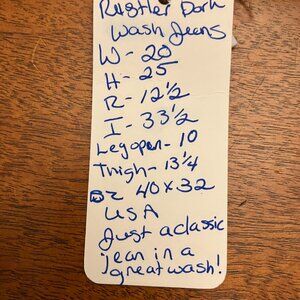 Rustler Dark
Wash Jeans
W - 20
H - 25
R - 12 1/2
I - 33 1/2
Leg open - 10
Thigh - 13 1/4
SZ 40x32
USA
Just a classic
jean in a
great wash!